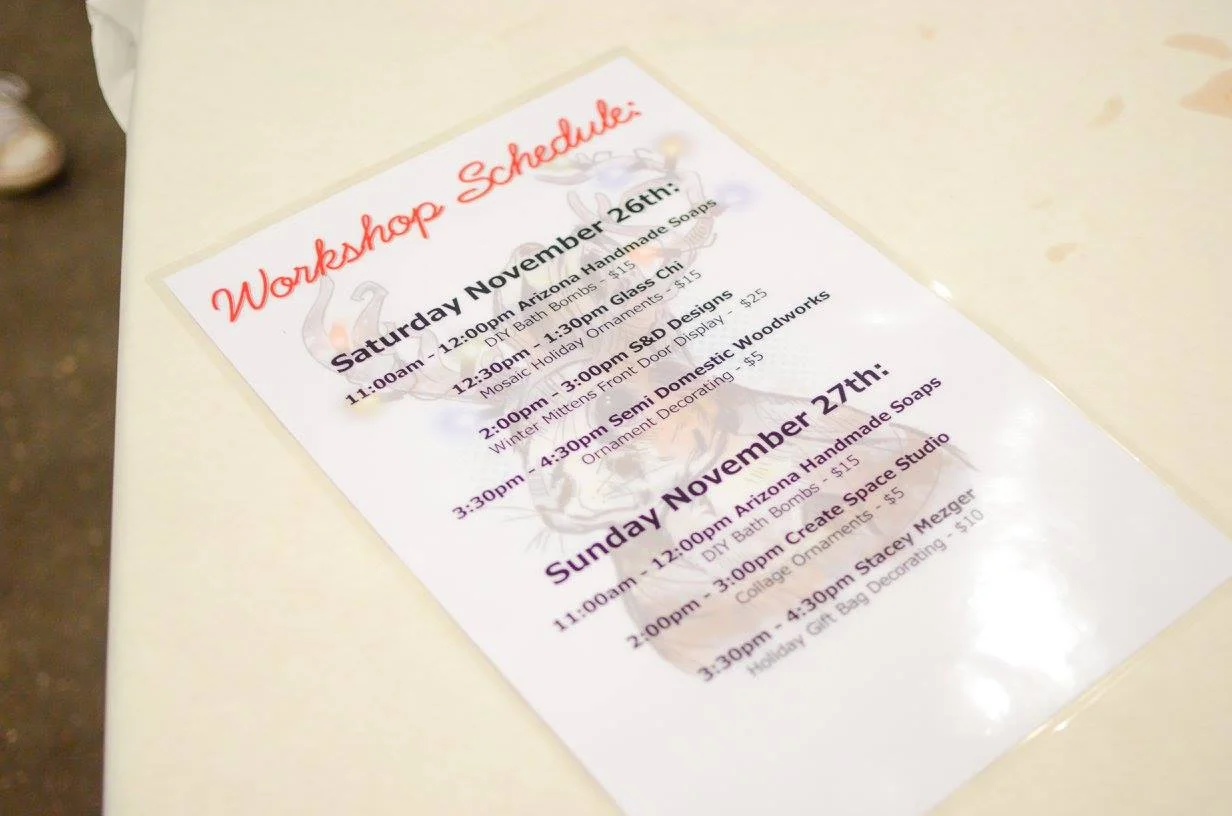 Workshop Schedule:
Saturday November 26th:
11:00am - 12:00pm Arizona Handmade Soaps
DIY Bath Bombs - $15
12:30pm - 1:30pm Glass Chi
Mosaic Holiday Ornaments - $15
2:00pm - 3:00pm S&D Designs
Winter Mittens Front Door Display - $25
3:30pm - 4:30pm Semi Domestic Woodworks
Ornament Decorating - $5
Sunday November 27th:
11:00am - 12:00pm Arizona Handmade Soaps
DIY Bath Bombs - $15
2:00pm - 3:00pm Create Space Studio
Collage Ornaments - $5
3:30pm - 4:30pm Stacey Mezger
Holiday Gift Bag Decorating - $10